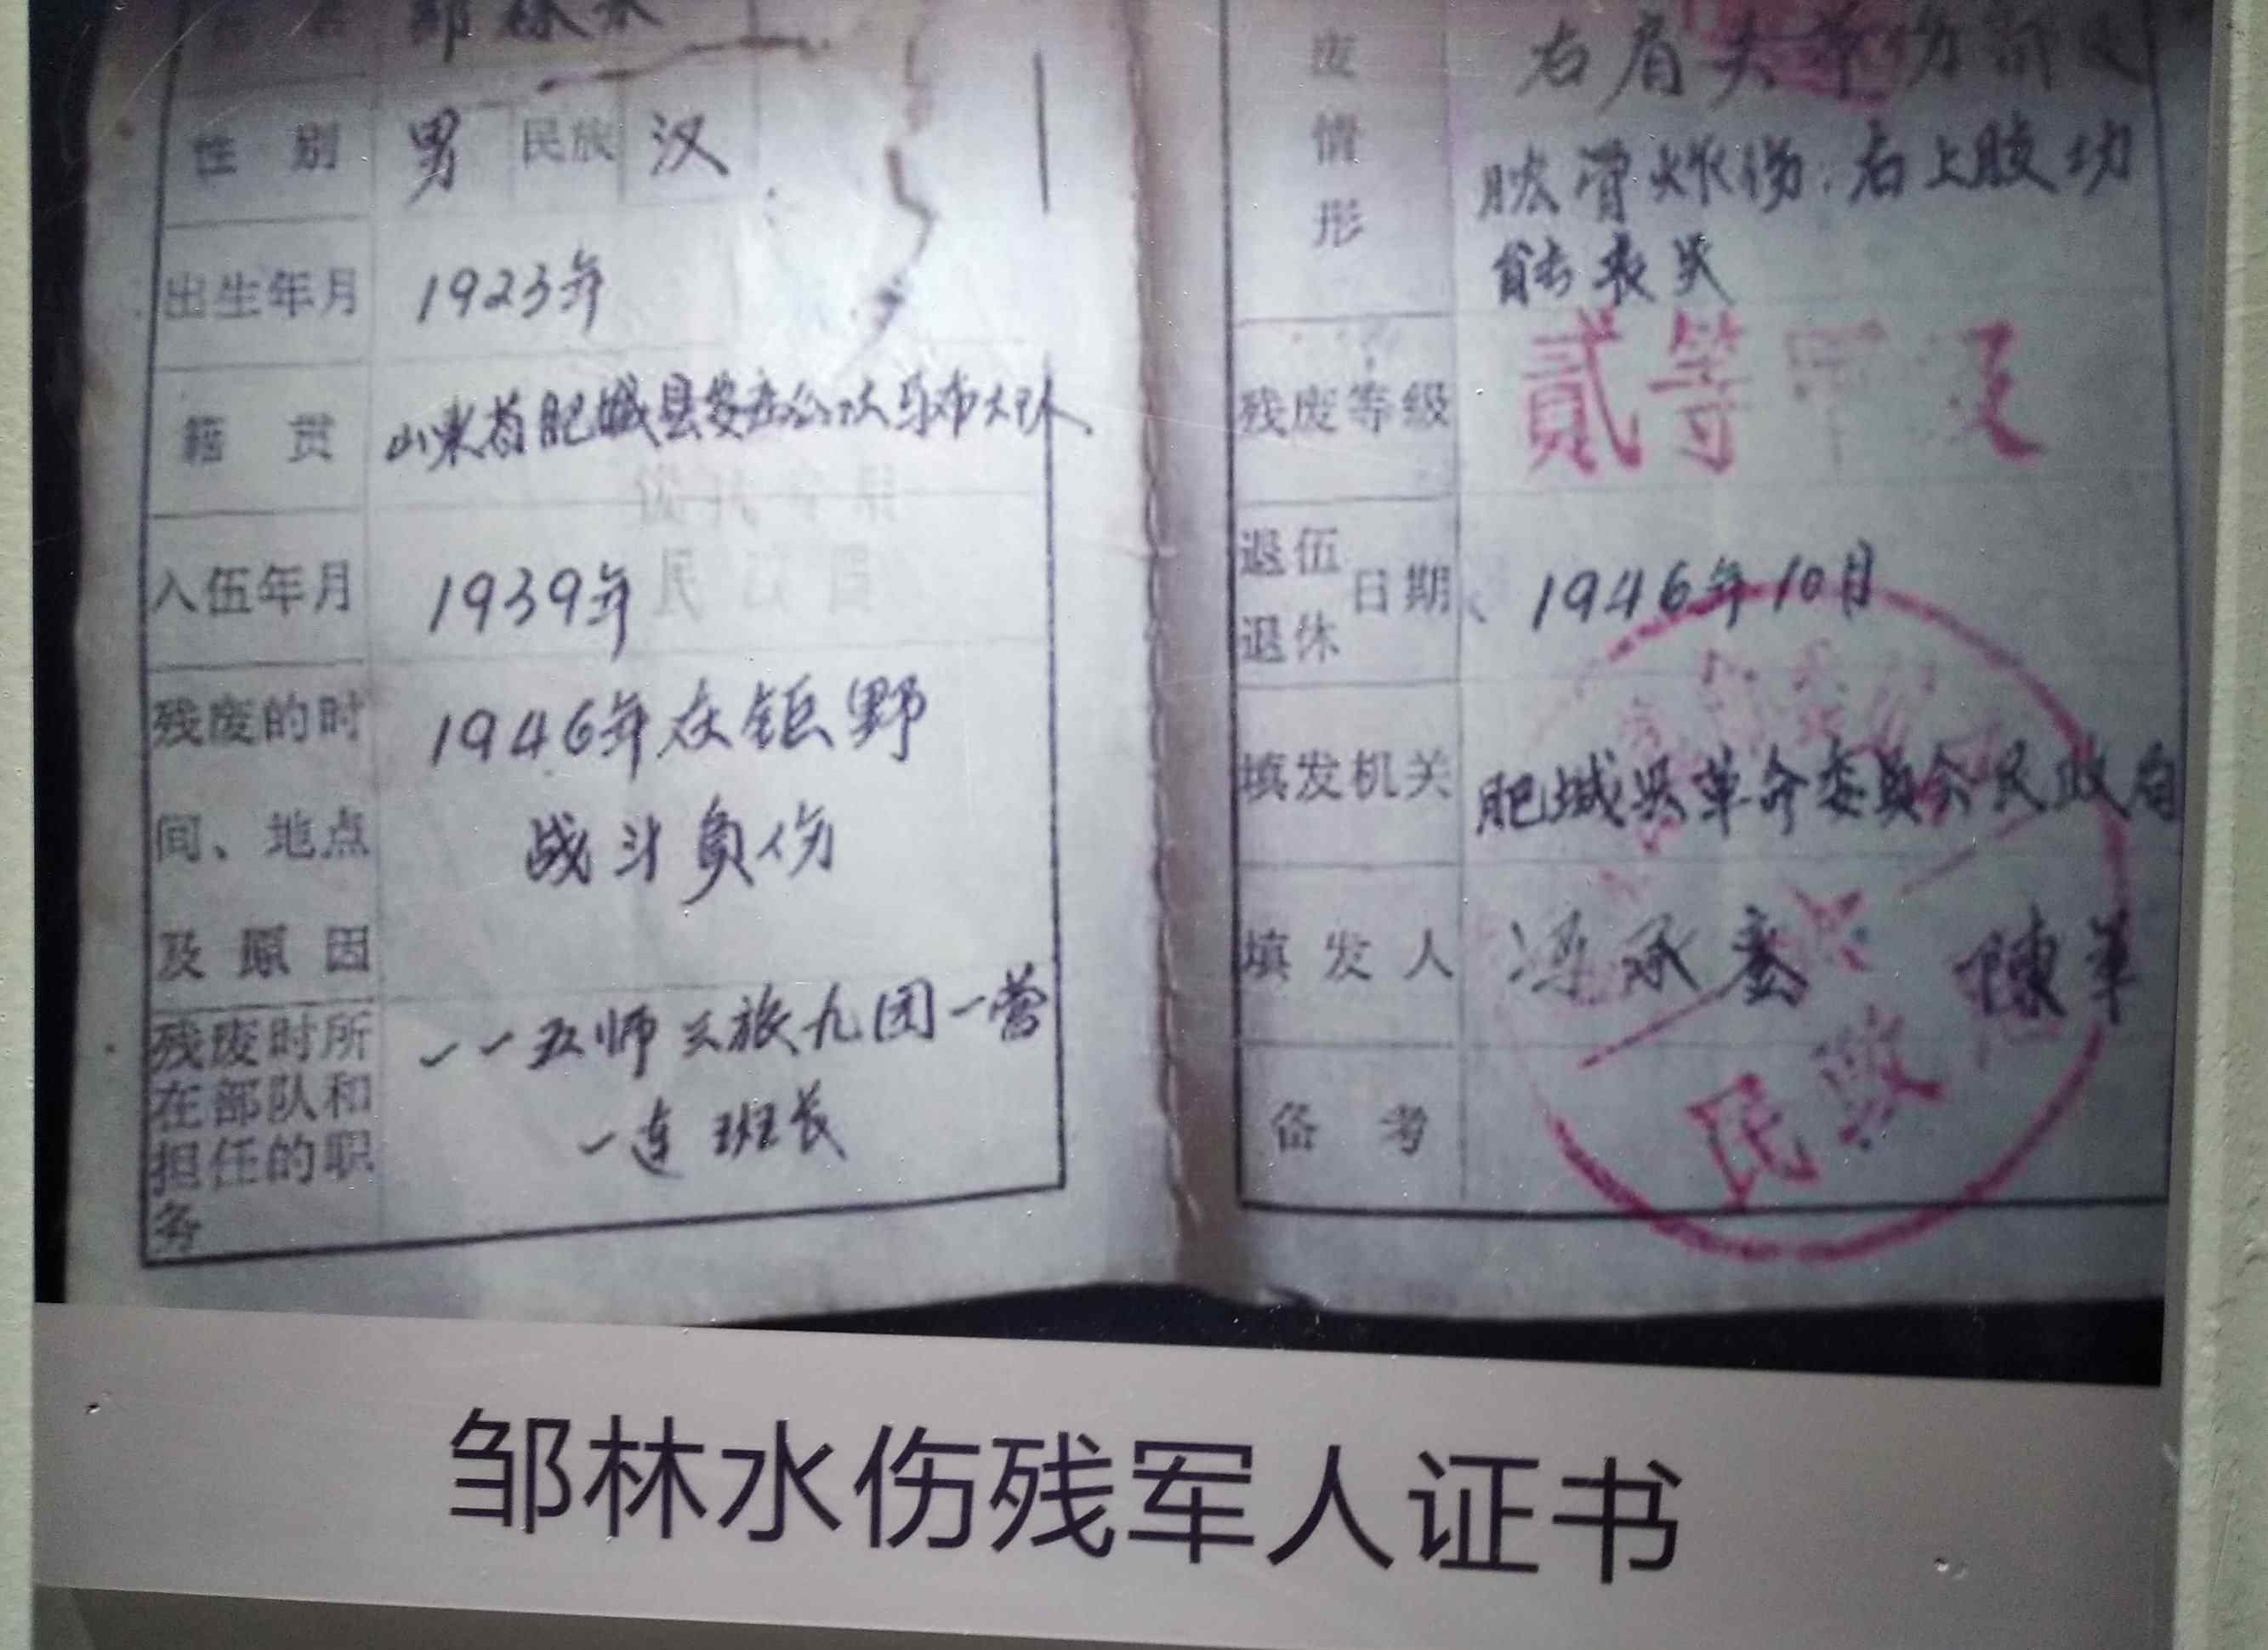 邹林水
性别 男 民族 汉
出生年月 1923年
籍贯 山东省肥城县安庄公社 大队
入伍年月 1939年
残废的时间、地点及原因
1946年在钜野
战斗负伤
残废时所在部队和担任的职务
一一五师三旅九团一营
一连班长
废情形
右肩关 伤
肱骨炸伤.右上肢功
能丧失
残废等级 貳等甲级
退伍退休日期 1946年10月
填发机关 肥城县革命委员会民政局
填发人 冯承 陳革
备考
民政
邹林水伤残军人证书